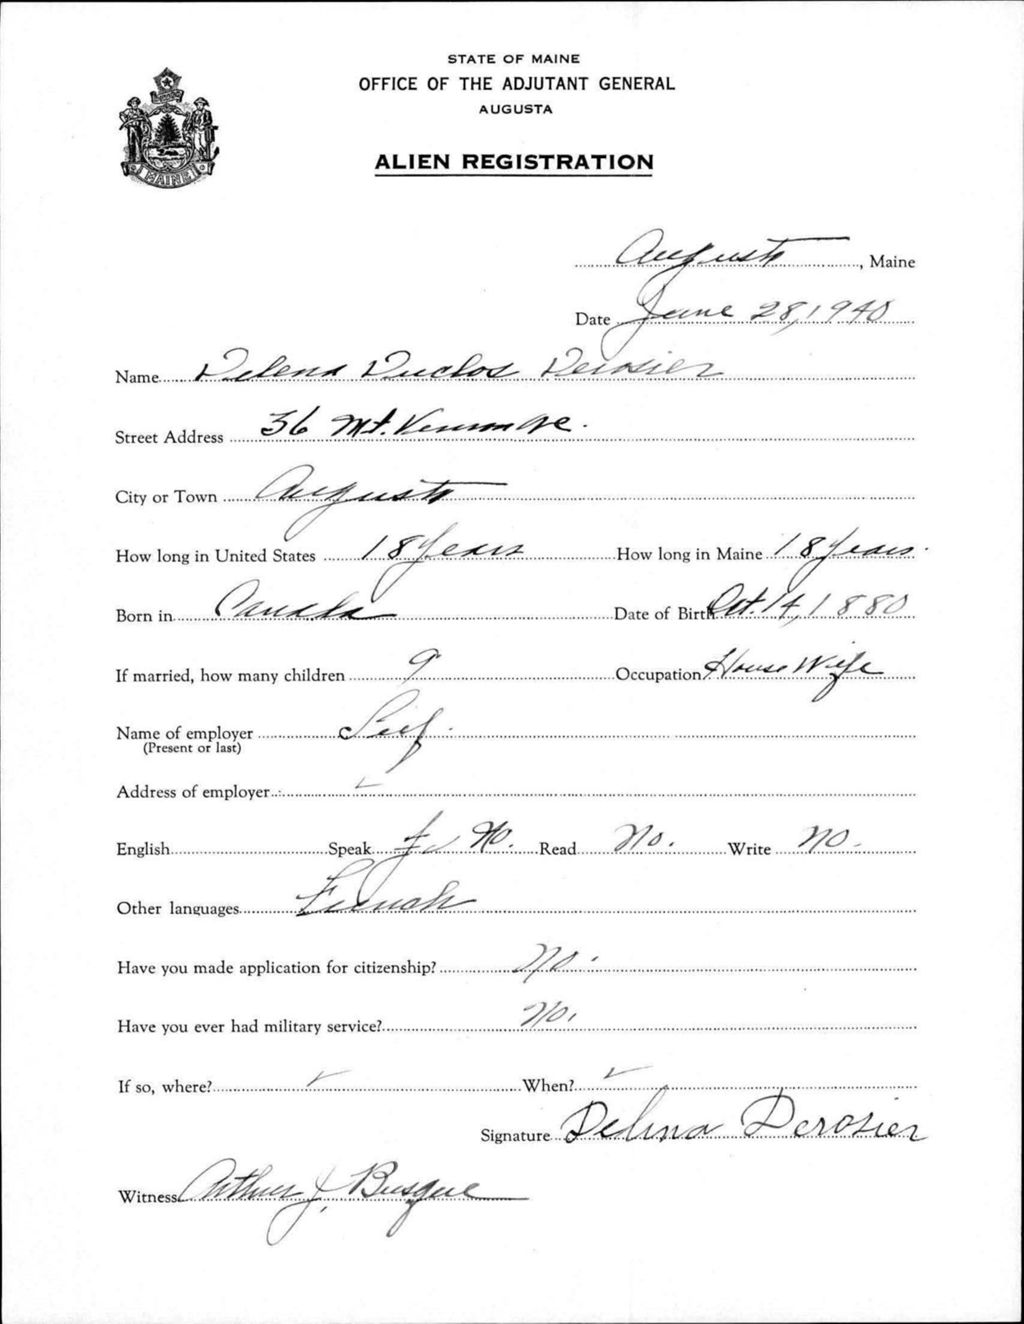 STATE OF MAINE
OFFICE OF THE ADJUTANT GENERAL
AUGUSTA
MAINE
ALIEN REGISTRATION
Augusta, Maine
Date June 28, 1940
Name Delena Duclos Derosier
Street Address 36 Mt. Vernon Ave.
City or Town Augusta
How long in United States 18 Years How long in Maine 18 Years.
Born in Canada Date of Birth Oct. 14, 1880
If married, how many children 9 Occupation House Wife
Name of employer Self.
(Present or last)
Address of employer
English Speak No. Read No. Write No.
Other languages French
Have you made application for citizenship? No.
Have you ever had military service? No.
If so, where? When?
Signature Delina Derosier
Witness Arthur J. Busque